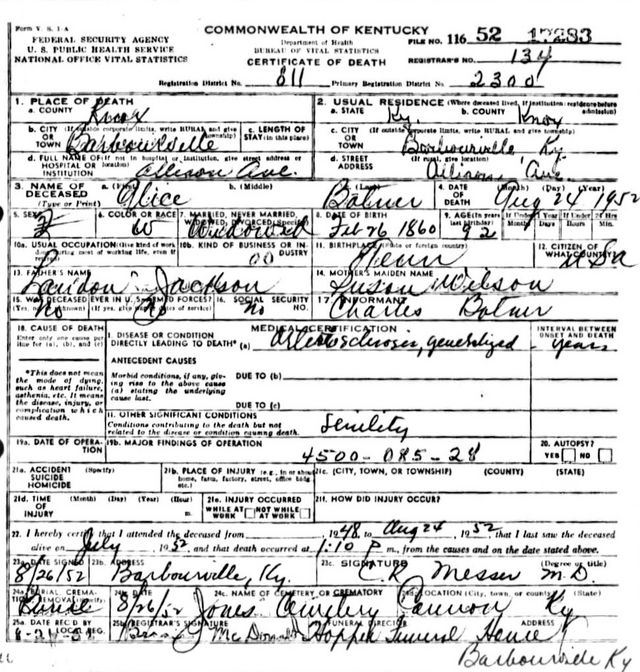 Form V. S. 1-A
COMMONWEALTH OF KENTUCKY
FEDERAL SECURITY AGENCY
U. S. PUBLIC HEALTH SERVICE
NATIONAL OFFICE VITAL STATISTICS
Department of Health
BUREAU OF VITAL STATISTICS
CERTIFICATE OF DEATH
FILE NO. 116 52 17283
REGISTRAR'S NO. 134
Registration District No. 811 Primary Registration District No. 2300
1. PLACE OF DEATH
a. COUNTY Knox
2. USUAL RESIDENCE (Where deceased lived, if institution: residence before admission)
a. STATE Ky. b. COUNTY Knox
b. CITY OR TOWN (If outside corporate limits, write RURAL and give township) Barbourville
c. LENGTH OF STAY (in this place)
c. CITY OR TOWN (If outside corporate limits, write RURAL and give township) Barbourville, Ky.
d. FULL NAME OF HOSPITAL OR INSTITUTION (If not in hospital or institution, give street address or location) Allison Ave.
d. STREET ADDRESS (If rural, give location) Allison Ave
3. NAME OF DECEASED (Type or Print)
a. (First) Alice b. (Middle) c. (Last) Bolner
4. DATE OF DEATH (Month) (Day) (Year) Aug 24 1952
5. SEX F
6. COLOR OR RACE W
7. MARRIED, NEVER MARRIED, WIDOWED, DIVORCED (Specify) Widowed
8. DATE OF BIRTH Feb 26 1860
9. AGE (In years last birthday) 92 If Under 1 Year If Under 24 Hrs
10a. USUAL OCCUPATION (Give kind of work done during most of working life, even if retired)
10b. KIND OF BUSINESS OR INDUSTRY 00
11. BIRTHPLACE (State or foreign country) Tenn
12. CITIZEN OF WHAT COUNTRY? USA
13. FATHER'S NAME Landon Jackson
14. MOTHER'S MAIDEN NAME Susan Wilson
15. WAS DECEASED EVER IN U. S. ARMED FORCES? (Yes, no, or unknown) (If yes, give war or dates of service) No No
16. SOCIAL SECURITY NO. No
17. INFORMANT Charles Bolner
18. CAUSE OF DEATH
Enter only one cause per line for (a), (b), and (c)
MEDICAL CERTIFICATION
INTERVAL BETWEEN ONSET AND DEATH
I. DISEASE OR CONDITION DIRECTLY LEADING TO DEATH* (a) Arteriosclerosis, generalized - years
*This does not mean the mode of dying, such as heart failure, asthenia, etc. It means the disease, injury, or complication which caused death.
ANTECEDENT CAUSES
Morbid conditions, if any, giving rise to the above cause (a) stating the underlying cause last.
DUE TO (b)
DUE TO (c)
II. OTHER SIGNIFICANT CONDITIONS
Conditions contributing to the death but not related to the disease or condition causing death.
Senility
19a. DATE OF OPERATION
19b. MAJOR FINDINGS OF OPERATION
4500-085-28
20. AUTOPSY?
YES NO
21a. ACCIDENT SUICIDE HOMICIDE (Specify)
21b. PLACE OF INJURY (e.g., in or about home, farm, factory, street, office bldg., etc.)
21c. (CITY, TOWN, OR TOWNSHIP) (COUNTY) (STATE)
21d. TIME OF INJURY (Month) (Day) (Year) (Hour) m.
21e. INJURY OCCURRED
WHILE AT WORK NOT WHILE AT WORK
21f. HOW DID INJURY OCCUR?
22. I hereby certify that I attended the deceased from 1948, to Aug 24, 1952, that I last saw the deceased
alive on July, 1952, and that death occurred at 1:10 P m., from the causes and on the date stated above.
23a. DATE SIGNED 8/26/52
23b. ADDRESS Barbourville, Ky.
23c. SIGNATURE (Degree or title) C. R. Messer M.D
24a. BURIAL, CREMATION, REMOVAL (Specify) Burial
8/26/52
24c. NAME OF CEMETERY OR CREMATORY Jones Cemetery
LOCATION (City, town, or county) (State) Cannon Ky
25a. DATE REC'D BY LOCAL REG.
25b. REGISTRAR'S SIGNATURE
FUNERAL DIRECTOR ADDRESS
Hopper Funeral House
Barbourville Ky